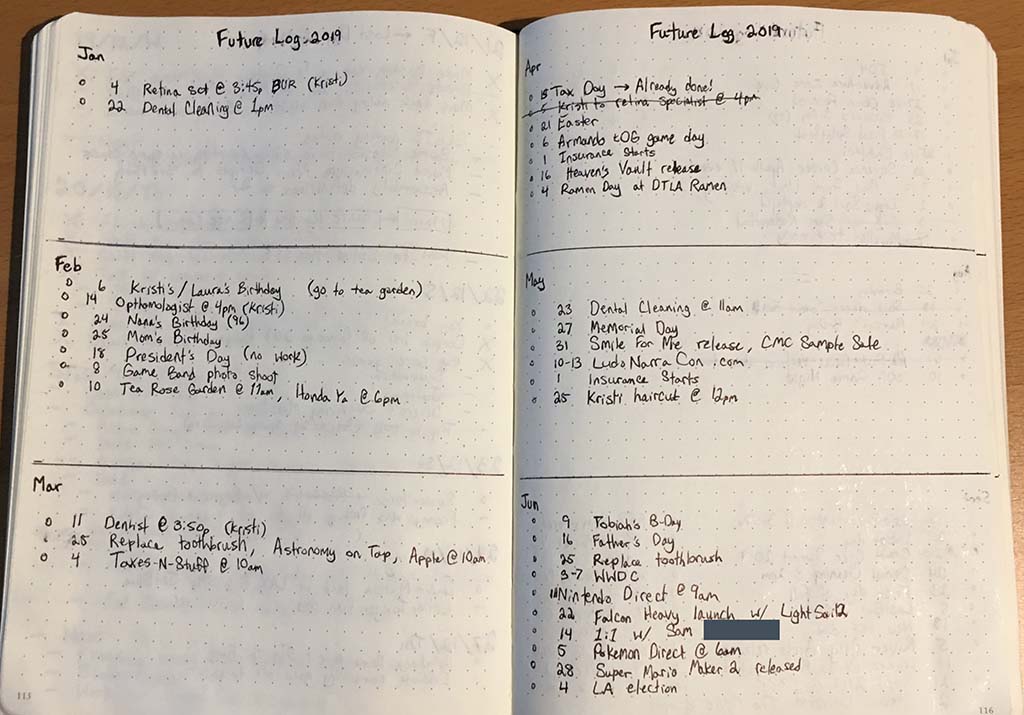 Future Log 2019
Jan
4 Retina sct @ 3:45p BUR (Kristi)
22 Dental Cleaning @ 1pm
Feb
6 Kristi's / Laura's Birthday (go to tea garden)
14 Opthomologist @ 4pm (Kristi)
24 Nana's Birthday (96)
25 Mom's Birthday
18 President's Day (no work)
8 Game Band photo shoot
10 Tea Rose Garden @ 11am, Honda Ya @ 6pm
Mar
11 Dentist @ 3:50p (Kristi)
25 Replace toothbrush, Astronomy on Tap, Apple @ 10am
4 Taxes-N-Stuff @ 10am
113
Future Log 2019
Apr
15 Tax Day → Already done!
5 Kristi to retina specialist @ 4pm
21 Easter
6 Armando tOG game day
1 Insurance Starts
16 Heaven's Vault release
4 Ramen Day at DTLA Ramen
May
23 Dental Cleaning @ 11am
27 Memorial Day
31 Smile For Me release, CMC Sample Sale
10-13 LudoNarraCon.com
1 Insurance Starts
25 Kristi haircut @ 12pm
Jun
9 Tobiah's B-Day
16 Father's Day
25 Replace toothbrush
3-7 WWDC
11 Nintendo Direct @ 9am
22 Falcon Heavy launch w/ LightSail2
14 1:1 w/ Sam
5 Pokemon Direct @ 6am
28 Super Mario Maker 2 released
4 LA election
116